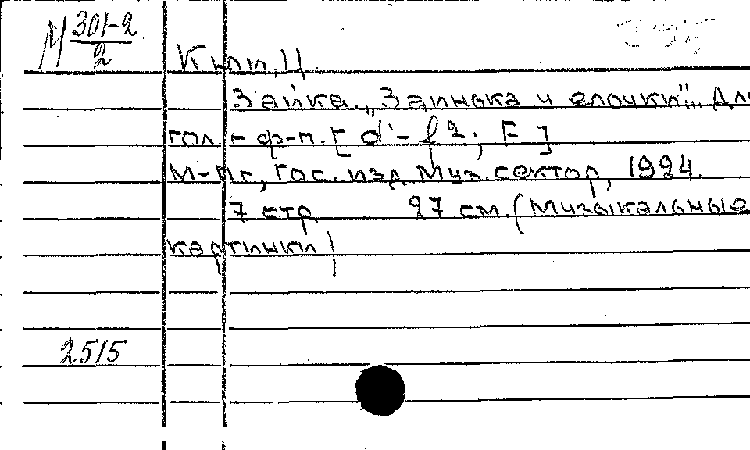 М 301-2
2
Кюи, Ц.
Зайка. „Заинька и елочки". Для
гол.-ф-п. [d'-f2; F]
М-Пг, Гос. изд. Муз. сектор, 1924.
7 стр 27 см. (Музыкальные
картинки)
2515